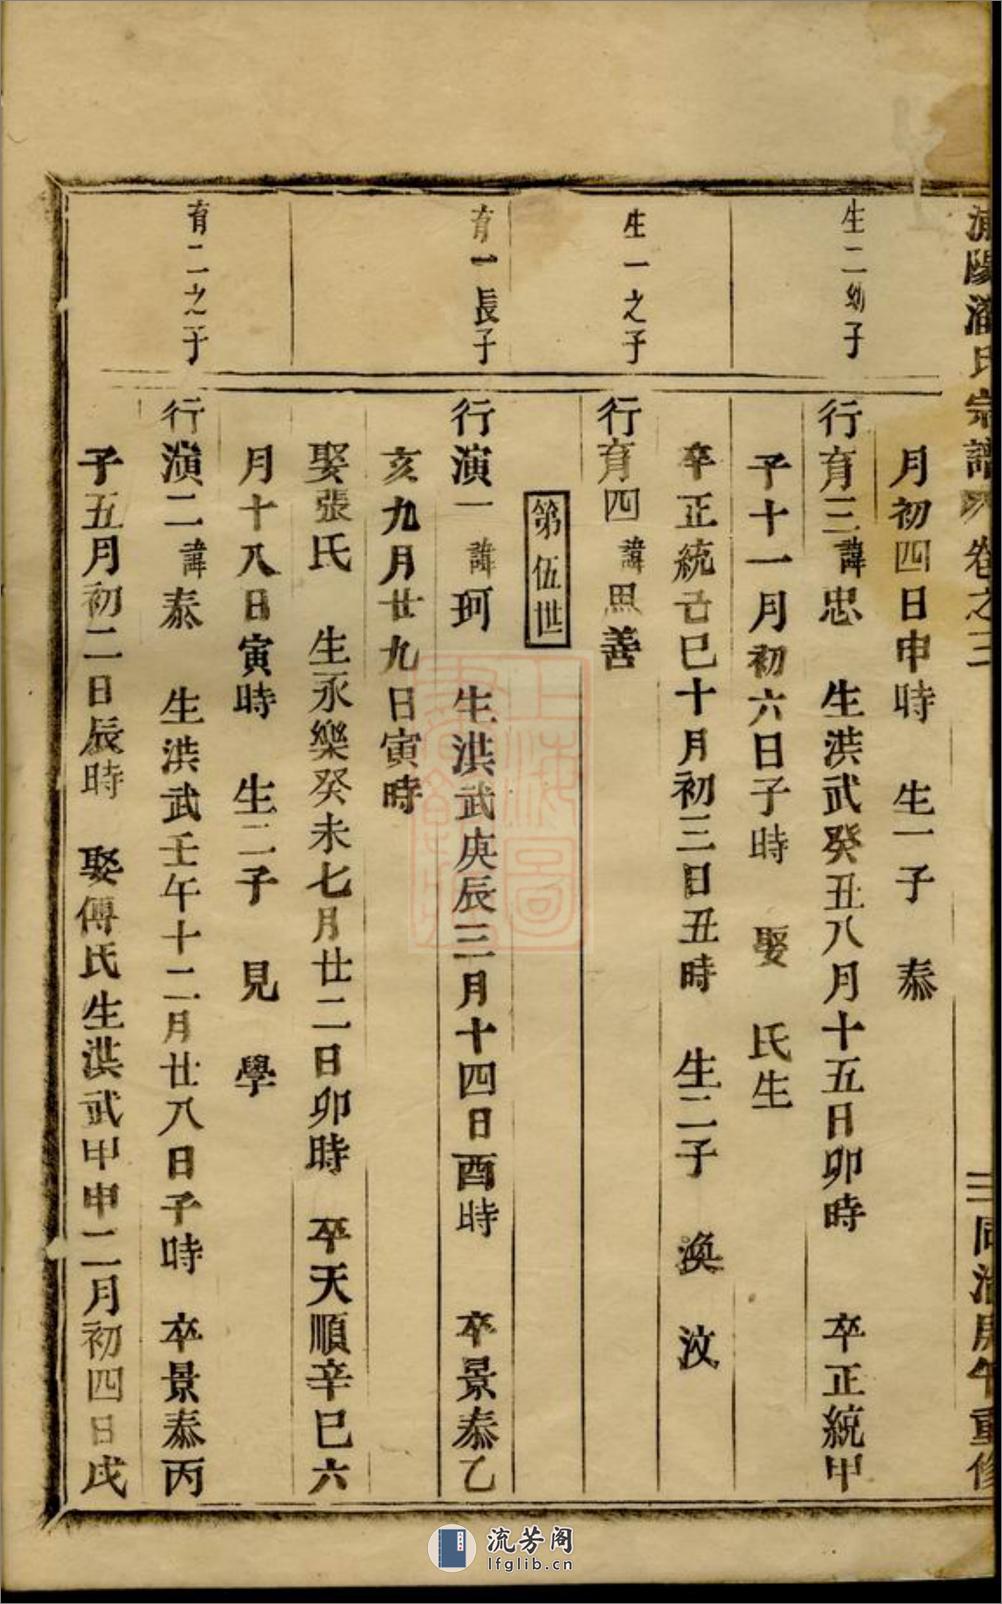 浦陽潘氏宗譜 卷之三 三 同治庚午重修
月初四日申時 生一子 泰
生二幼子
行育三諱忠 生洪武癸丑八月十五日卯時 卒正統甲
子十一月初六日子時 娶 氏生
卒正統己巳十月初三日丑時 生二子 渙 汶
生一之子
行育四諱思善
第伍世
育一長子
行演一諱珂 生洪武庚辰三月十四日酉時 卒景泰乙
亥九月廿九日寅時
娶張氏 生永樂癸未七月廿二日卯時 卒天順辛巳六
月十八日寅時 生二子 見 學
育二之子
行演二諱泰 生洪武壬午十二月廿八日子時 卒景泰丙
子五月初二日辰時 娶傅氏生洪武甲申二月初四日戌
上海圖書館藏
流芳阁
lfglib.cn